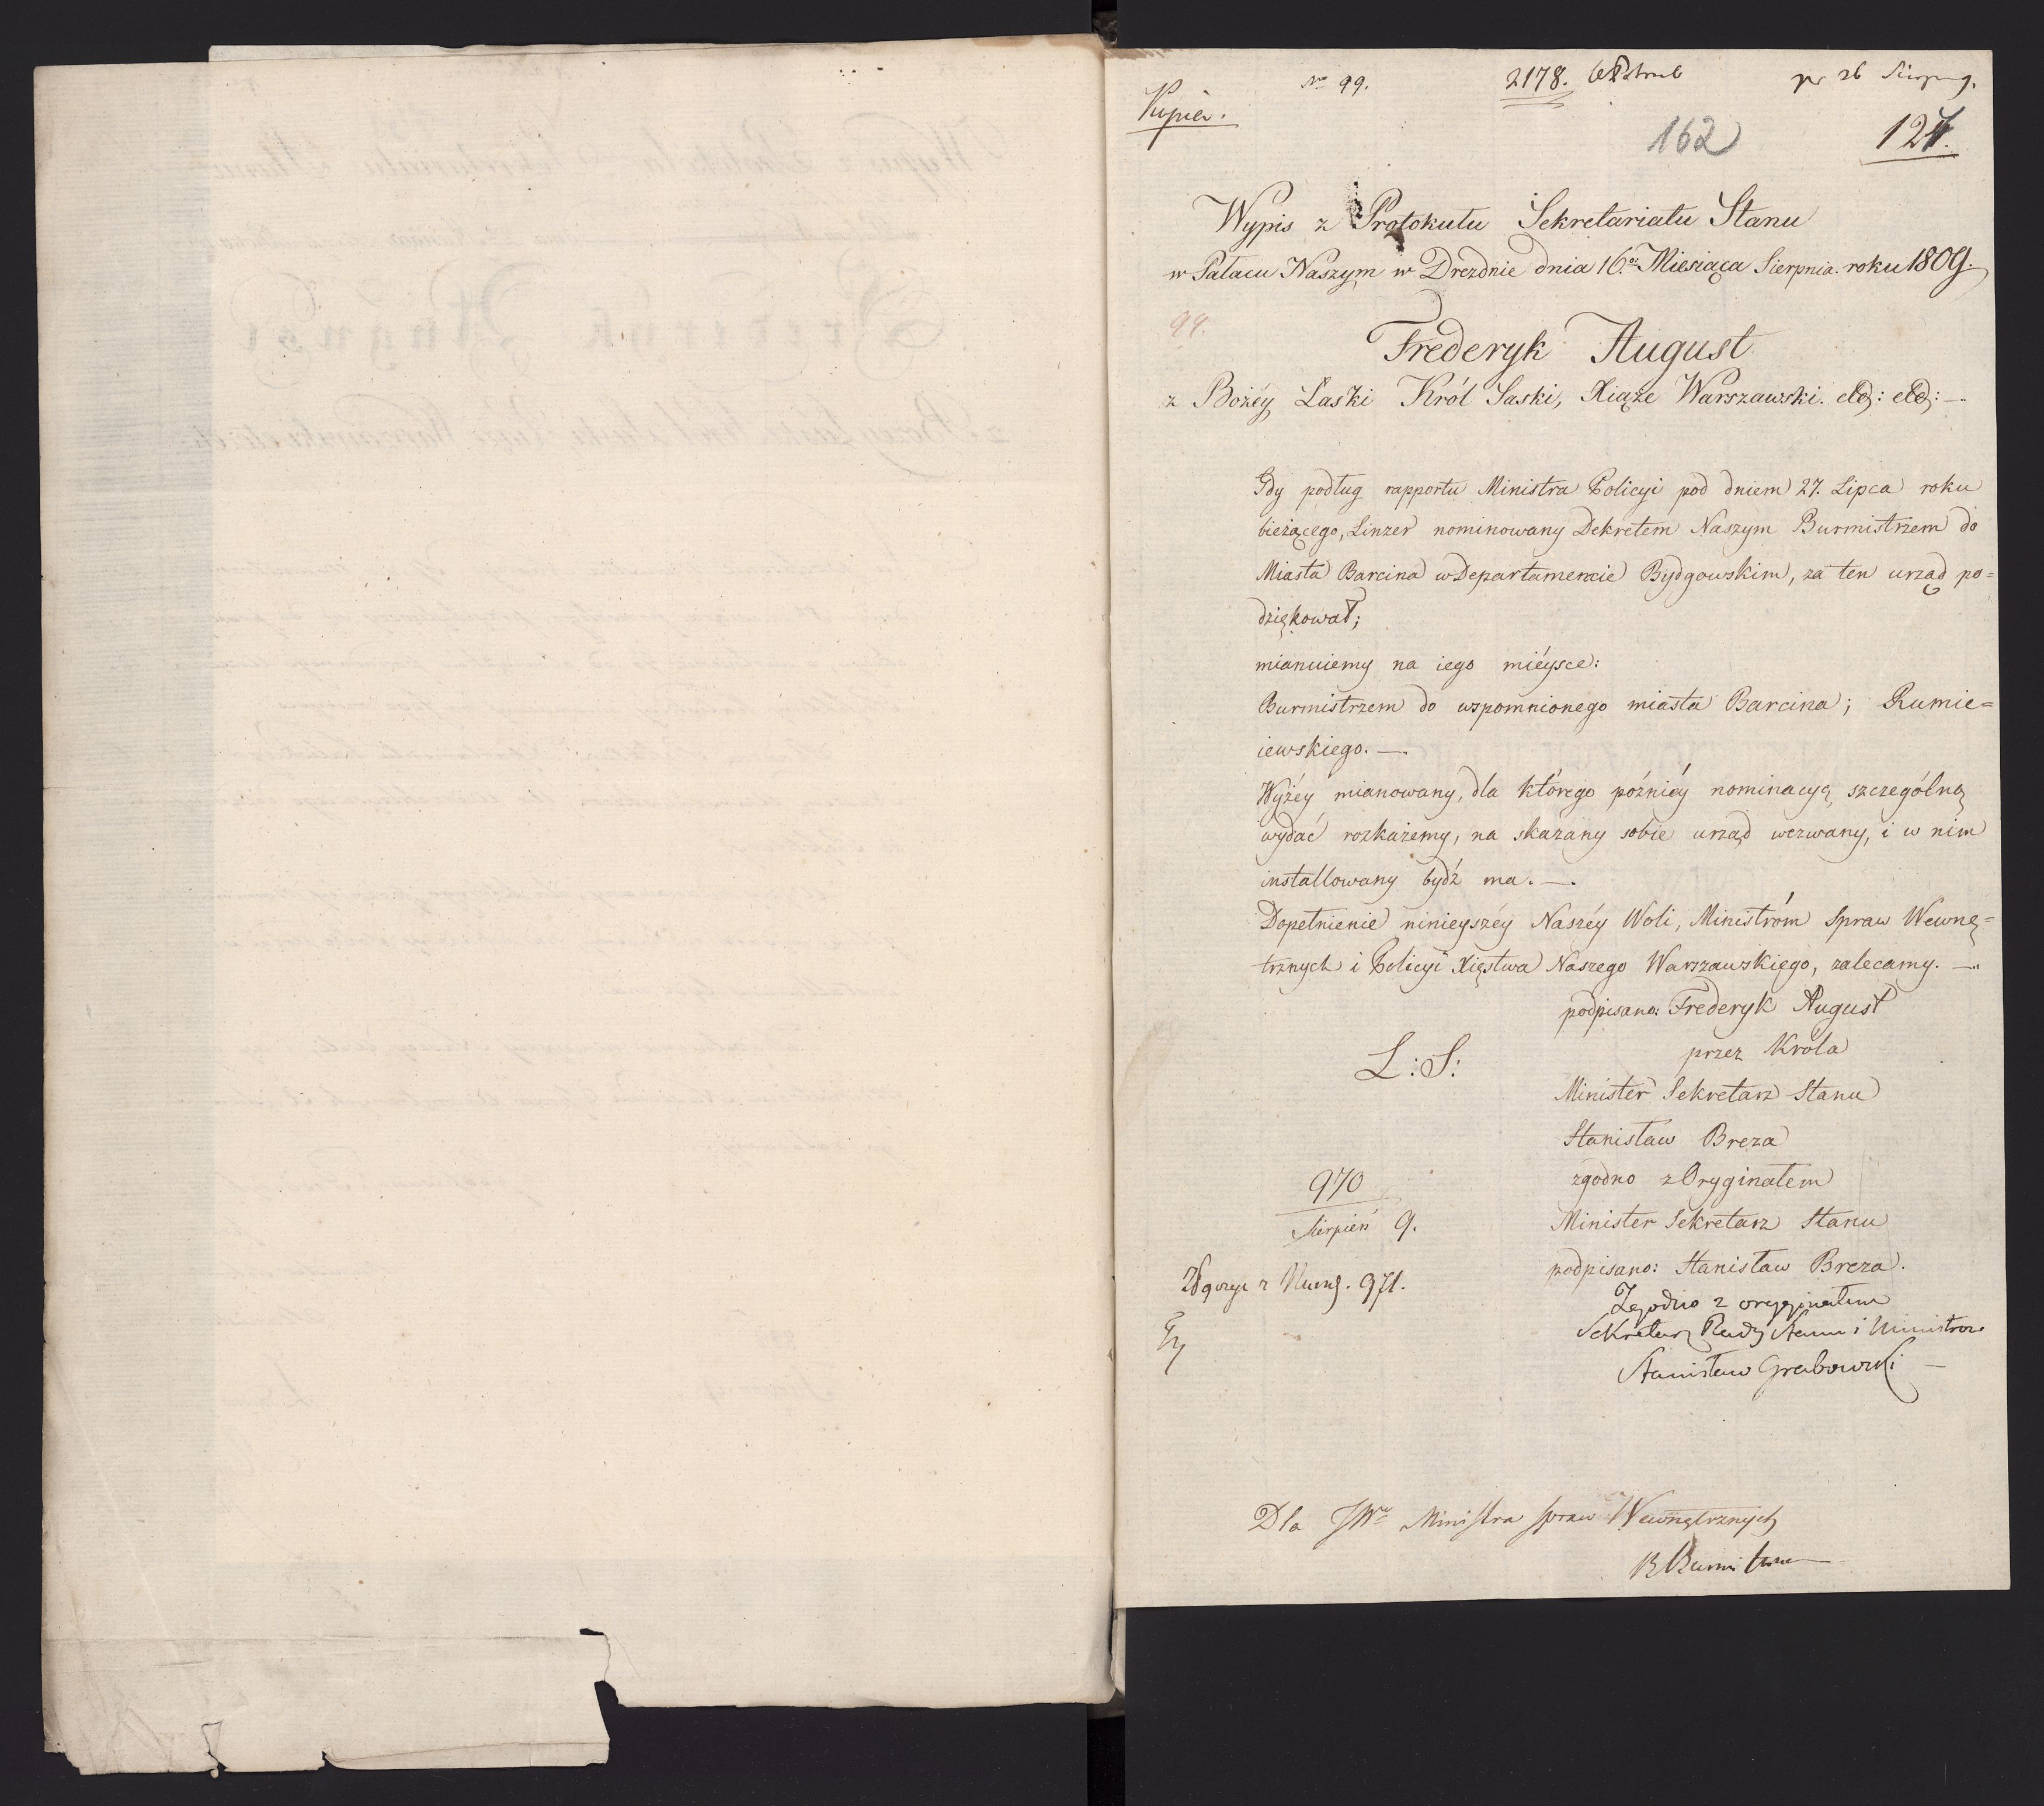 Nro 99. 2178. pr 26 Sierpn 9.
Kopia.
162 124.
Wypis z Protokułu Sekretariatu Stanu
w Pałacu Naszym w Dreznie dnia 16.go Miesiąca Sierpnia. roku 1809.
99.
Frederyk August
z Bożéy Łaski Król Saski, Xiąże Warszawski. etc: etc: —.
Gdy podług rapportu Ministra Policyi pod dniem 27. Lipca roku
bieżącego, Linzer nominowany Dekretem Naszym Burmistrzem do
Miasta Barcina w Departamencie Bydgowskim, za ten urząd po=
dziękował;
mianuiemy na iego miéysce:
Burmistrzem do wspomnionego miasta Barcina; Rumie=
iewskiego. —.
Wyżéy mianowany, dla którego późniéy nominacyą szczególną
wydać rozkażemy, na skazany sobie urząd wezwany, i w nim
installowany bydź ma. —.
Dopełnienie ninieyszéy Naszéy Woli, Ministróm Spraw Wewnę=
trznych i Policyi Xięstwa Naszego Warszawskiego, zalecamy. —.
podpisano: Frederyk August
L: S: przez Króla
Minister Sekretarz Stanu
Stanisław Breza
970 zgodno z Oryginałem
Sierpień 9. Minister Sekretarz Stanu
podpisano: Stanisław Breza.
971. Zgodno z oryginałem
Sekretarz Rady Stanu i Ministrow
Stanisław Grabowski —
Dla JWo Ministra spraw Wewnętrznych